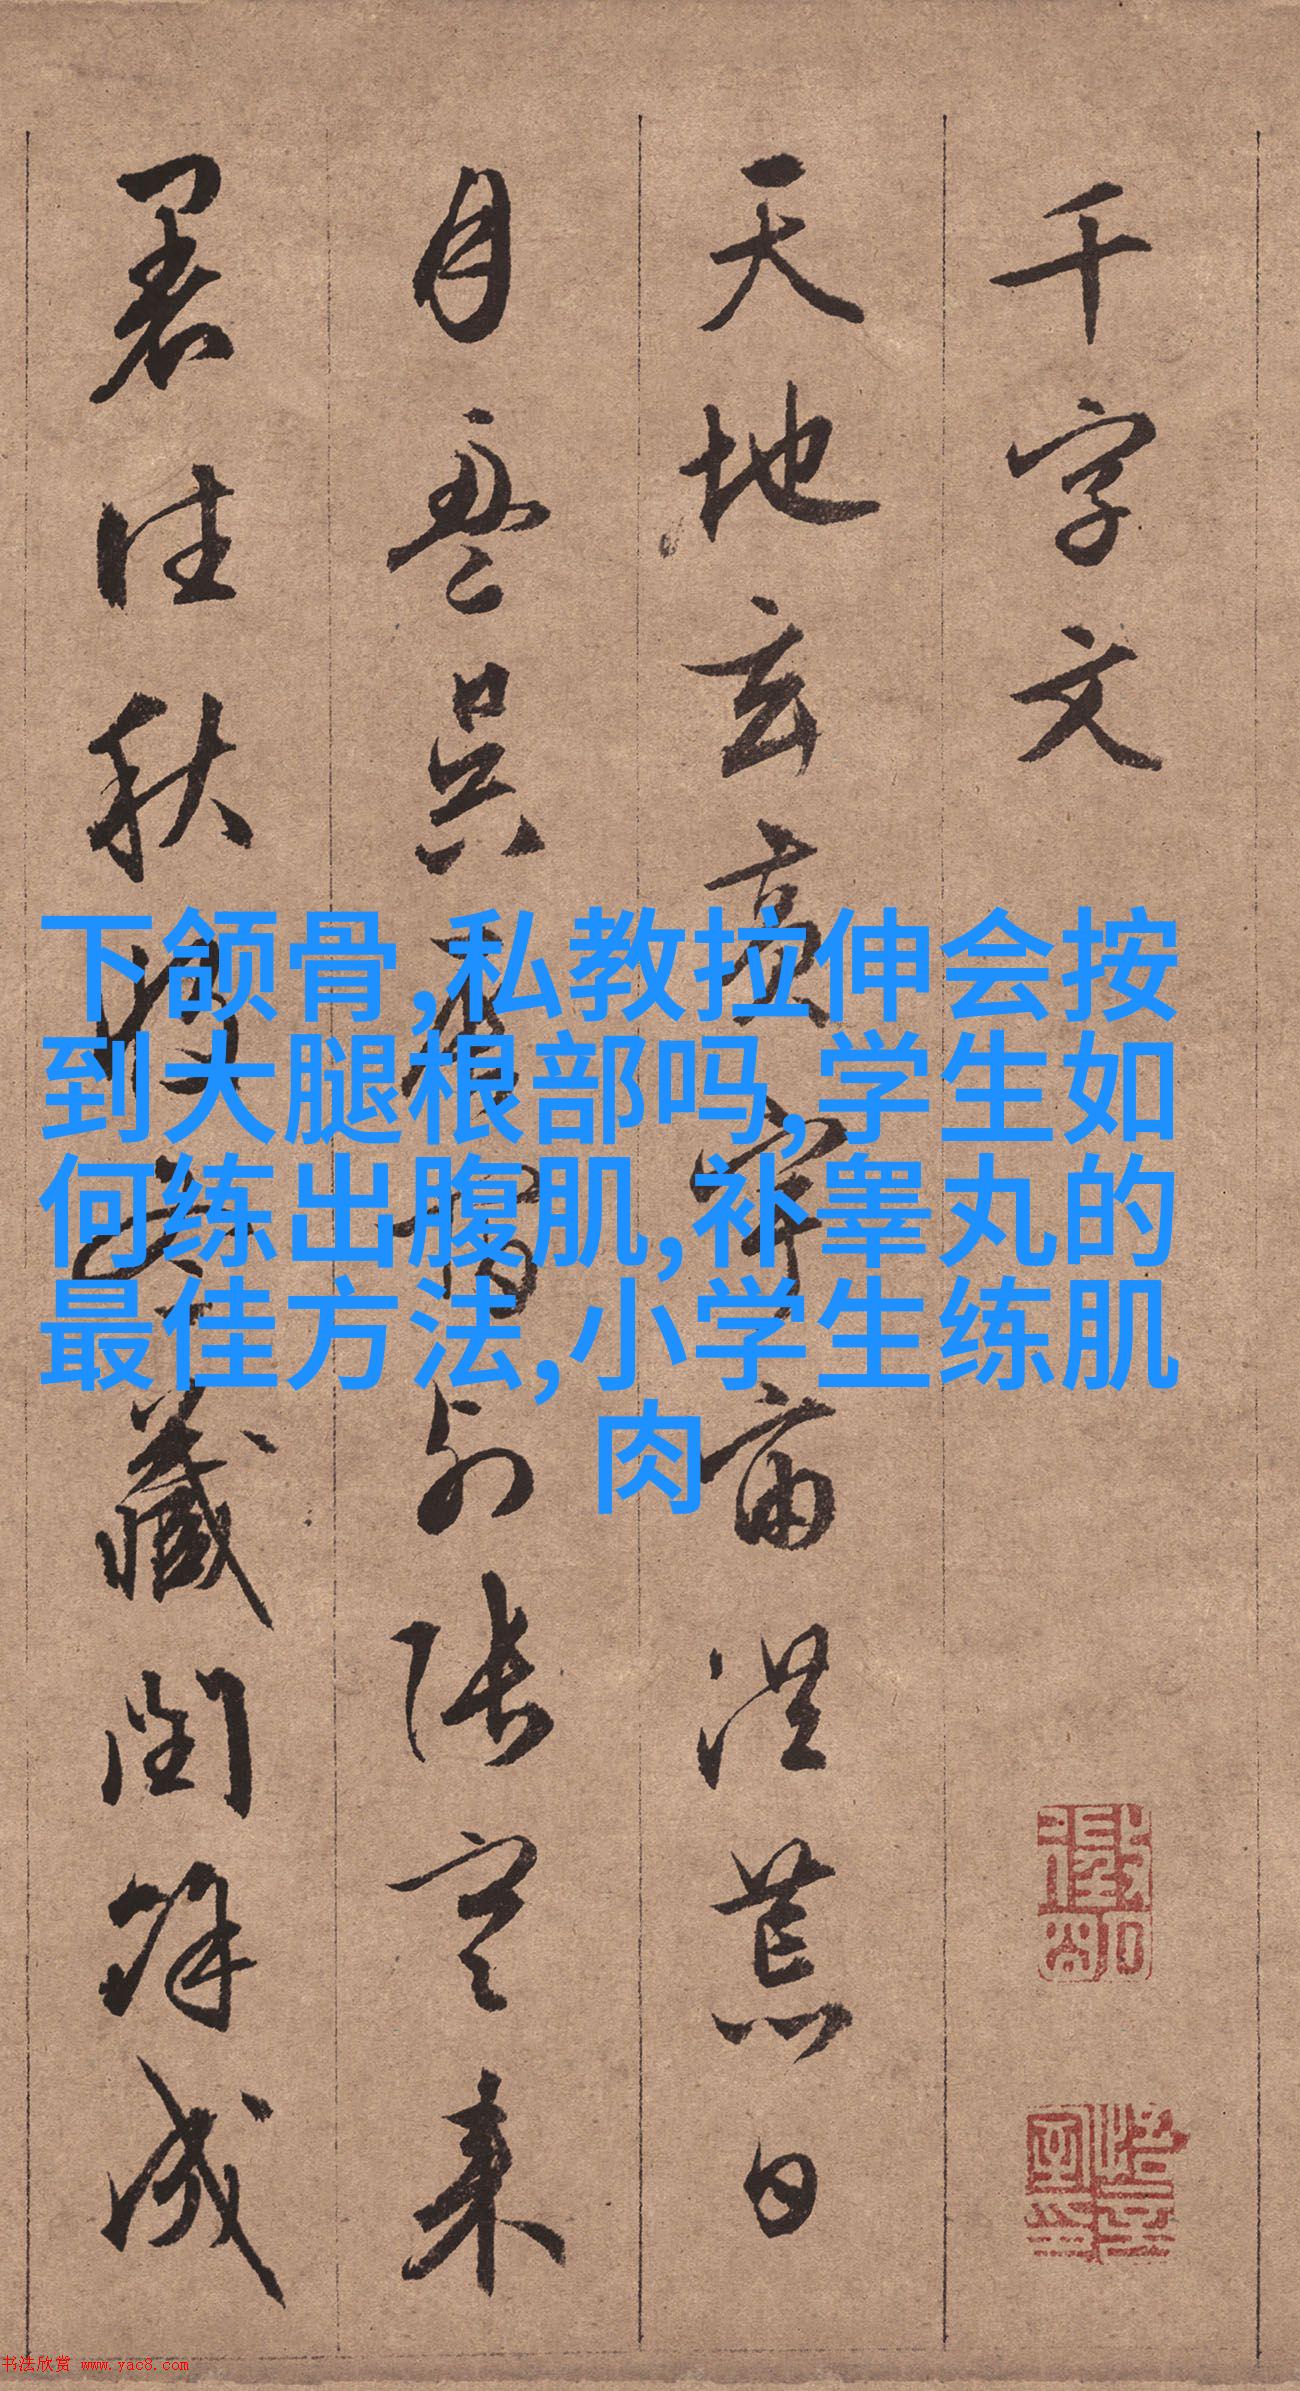 千字文
天地玄黄宇宙洪荒日
月盈昃辰宿列张寒来
暑往秋收冬藏闰余成
下颌骨,私教拉伸会按
到大腿根部吗,学生如
何练出腹肌,补睾丸的
最佳方法,小学生练肌
肉
书法欣赏 www.yac8.com